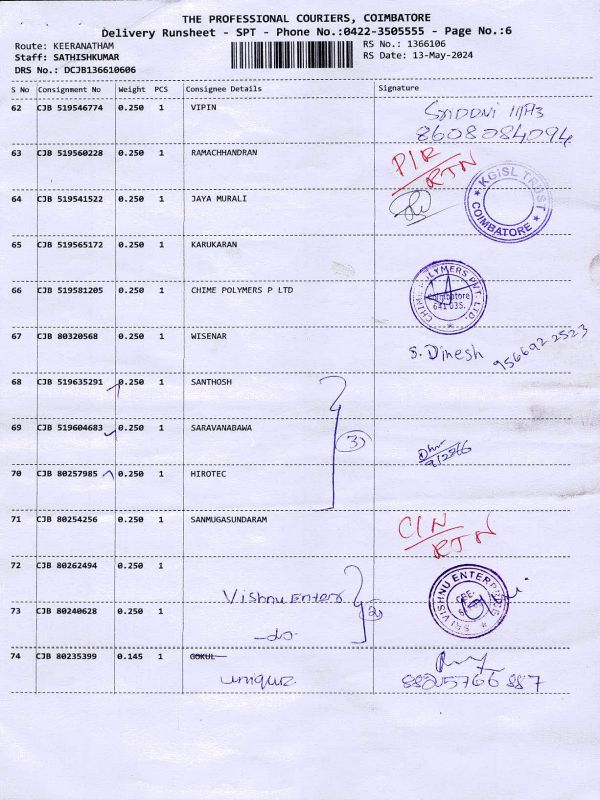 THE PROFESSIONAL COURIERS, COIMBATORE
Delivery Runsheet - SPT - Phone No.:0422-3505555 - Page No.:6
Route: KEERANATHAM
RS No.: 1366106
Staff: SATHISHKUMAR
RS Date: 13-May-2024
DRS No.: DCJB136610606
S No Consignment No Weight PCS Consignee Details Signature
62 CJB 519546774 0.250 1 VIPIN
8608084094
63 CJB 519560228 0.250 1 RAMACHHANDRAN
RTN
64 CJB 519541522 1 JAYA MURALI
0.250
KGISL TRUST
COIMBATORE
65 CJB 519565172 0.250 1 KARUKARAN
66 CJB 519581205 0.250 1 CHIME POLYMERS P LTD
CHIME POLYMERS PVT. LTD.
Coimbatore
641 035.
67 CJB 80320568 0.250 1 WISENAR
S. Dinesh 956692 2523
68 CJB 519635291 0.250 1 SANTHOSH
69 CJB 519604683 0.250 1 SARAVANABAWA
3
70 CJB 80257985 0.250 1 HIROTEC
71 CJB 80254256 0.250 1 SANMUGASUNDARAM
RTN
72 CJB 80262494 0.250 1
Vishnu Enter
2
SRI VISHNU ENTERPRISE
73 CJB 80240628 0.250 1
-do-
74 CJB 80235399 0.145 1 GOKUL
8825766887